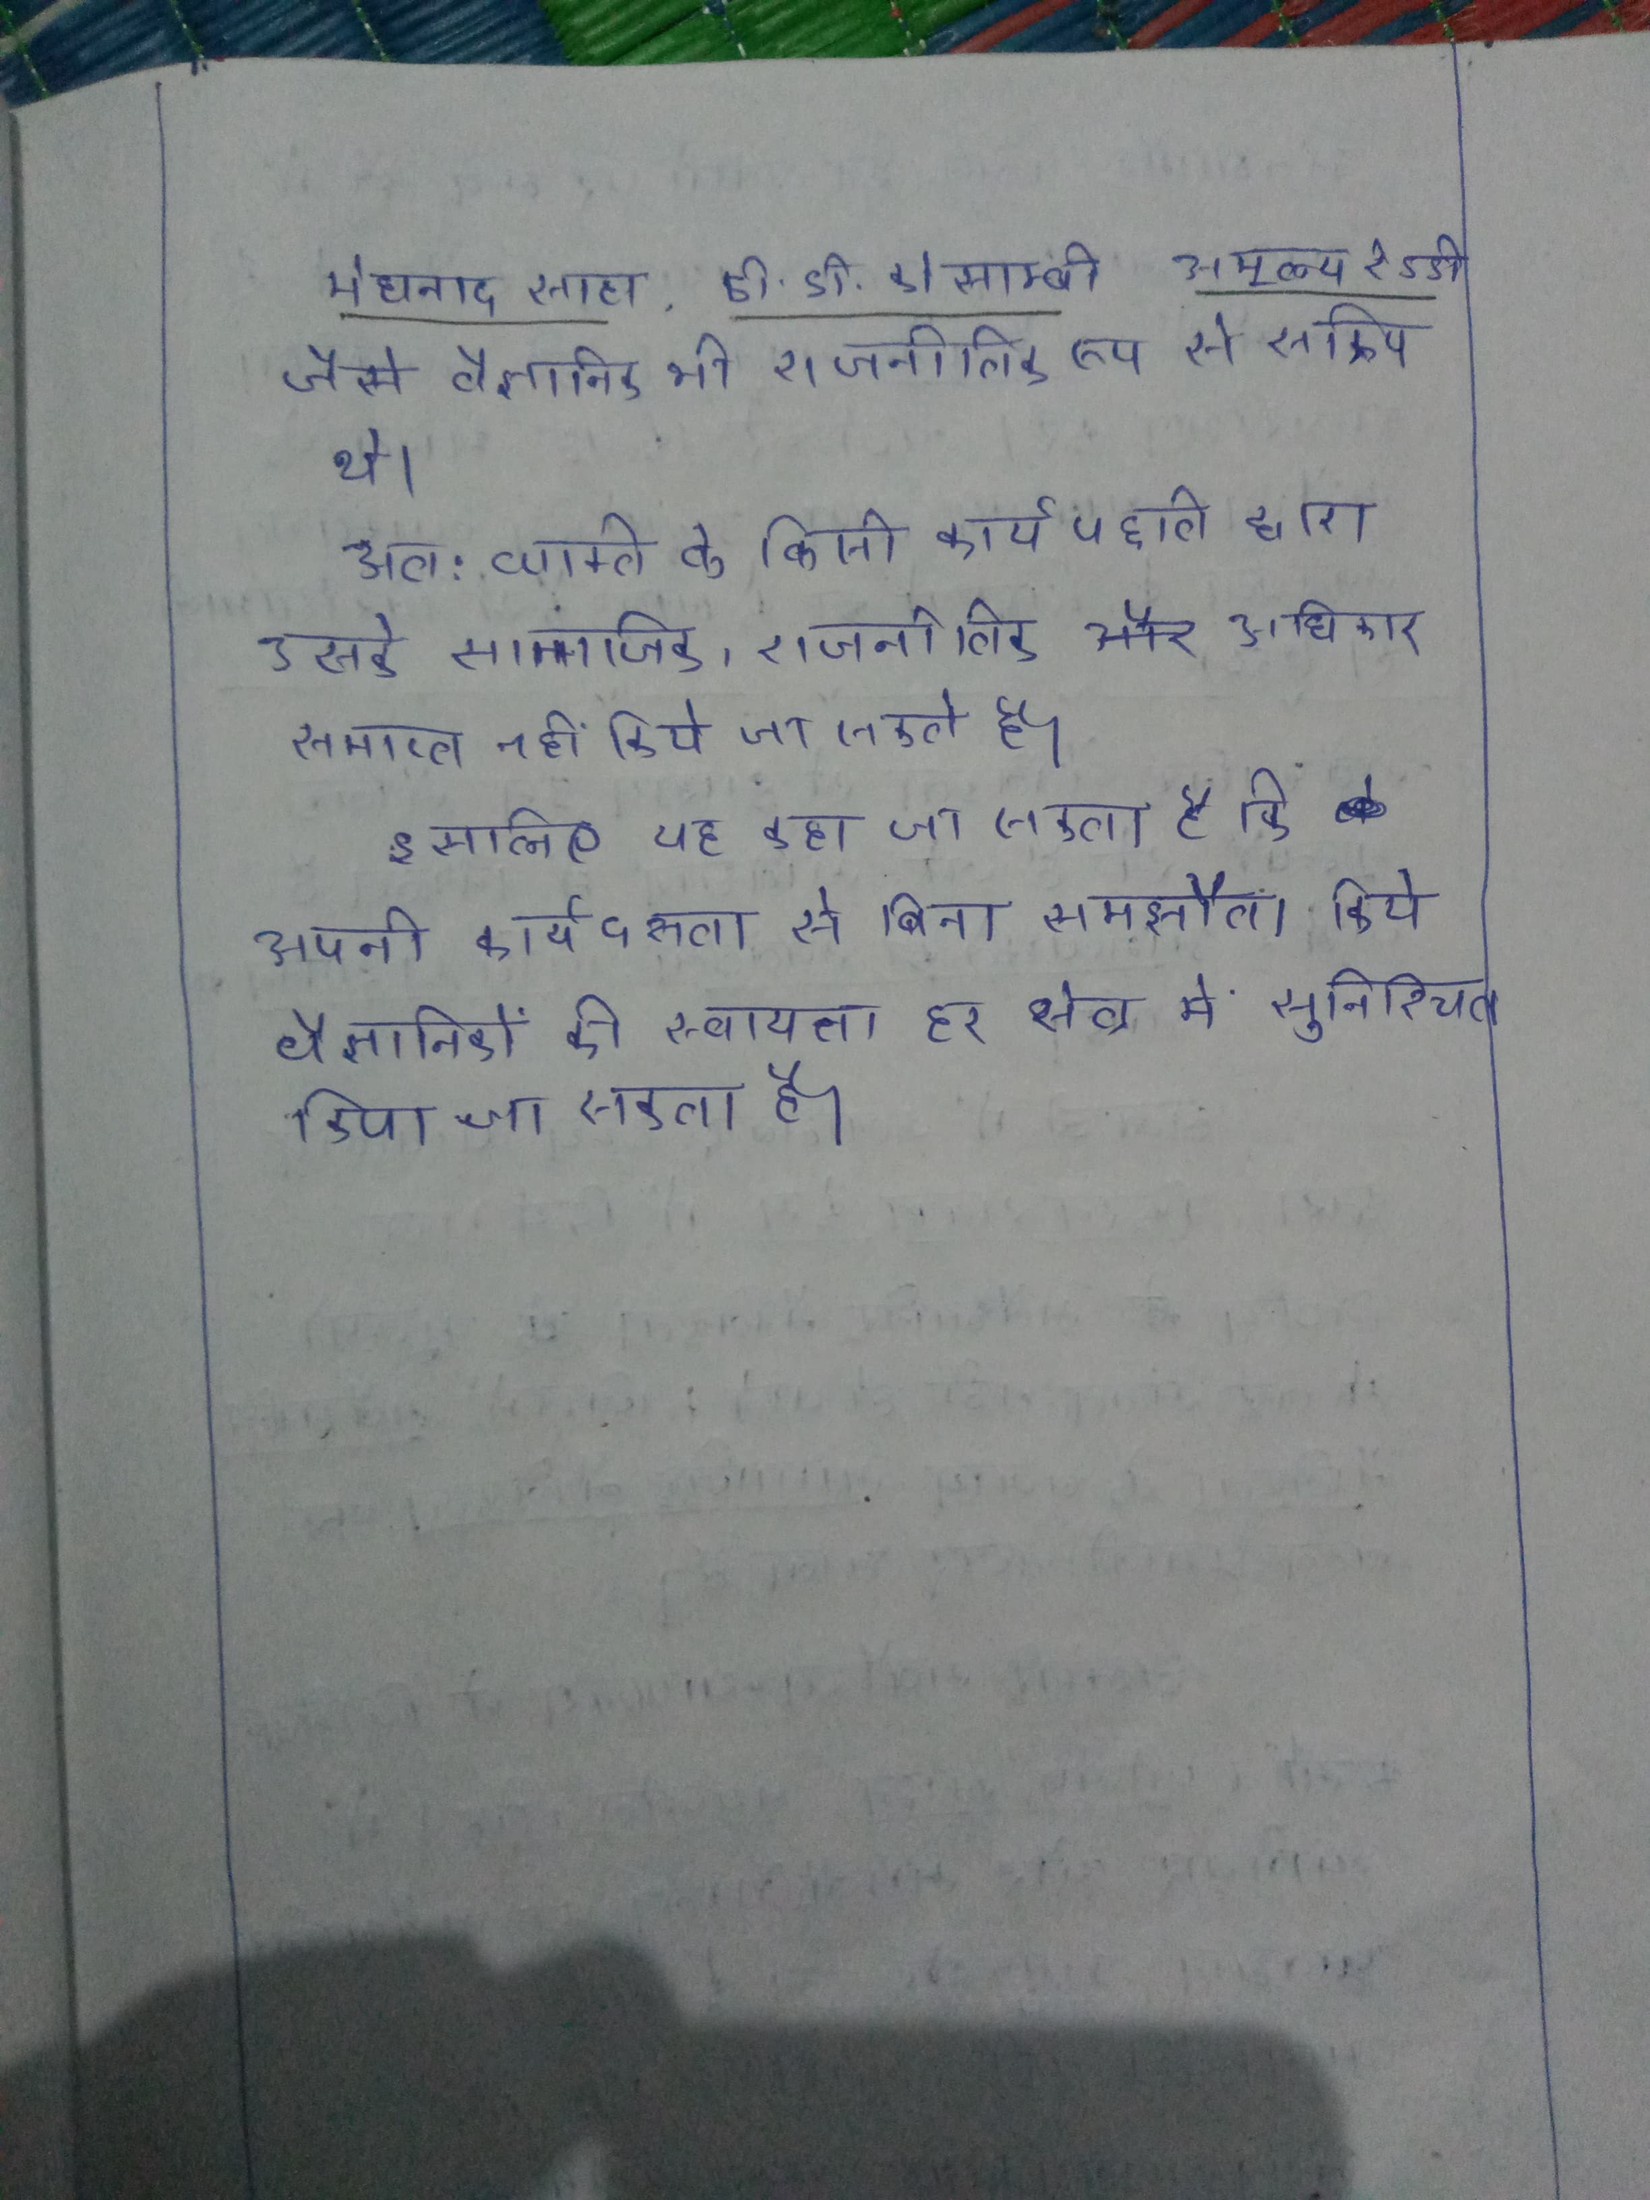 मेघनाद साहा, डी. डी. कोसाम्बी अमूल्य रेड्डी
जैसे वैज्ञानिक भी राजनीतिक रूप से सक्रिय
थे।
अतः व्यक्ति के किसी कार्य पद्धति द्वारा
उसके सामाजिक, राजनीतिक और अधिकार
समाप्त नहीं किये जा सकते है।
इसलिए यह कहा जा सकता है कि
अपनी कार्यदक्षता से बिना समझौता किये
वैज्ञानिकों की स्वायत्ता हर क्षेत्र में सुनिश्चित
किया जा सकता है।